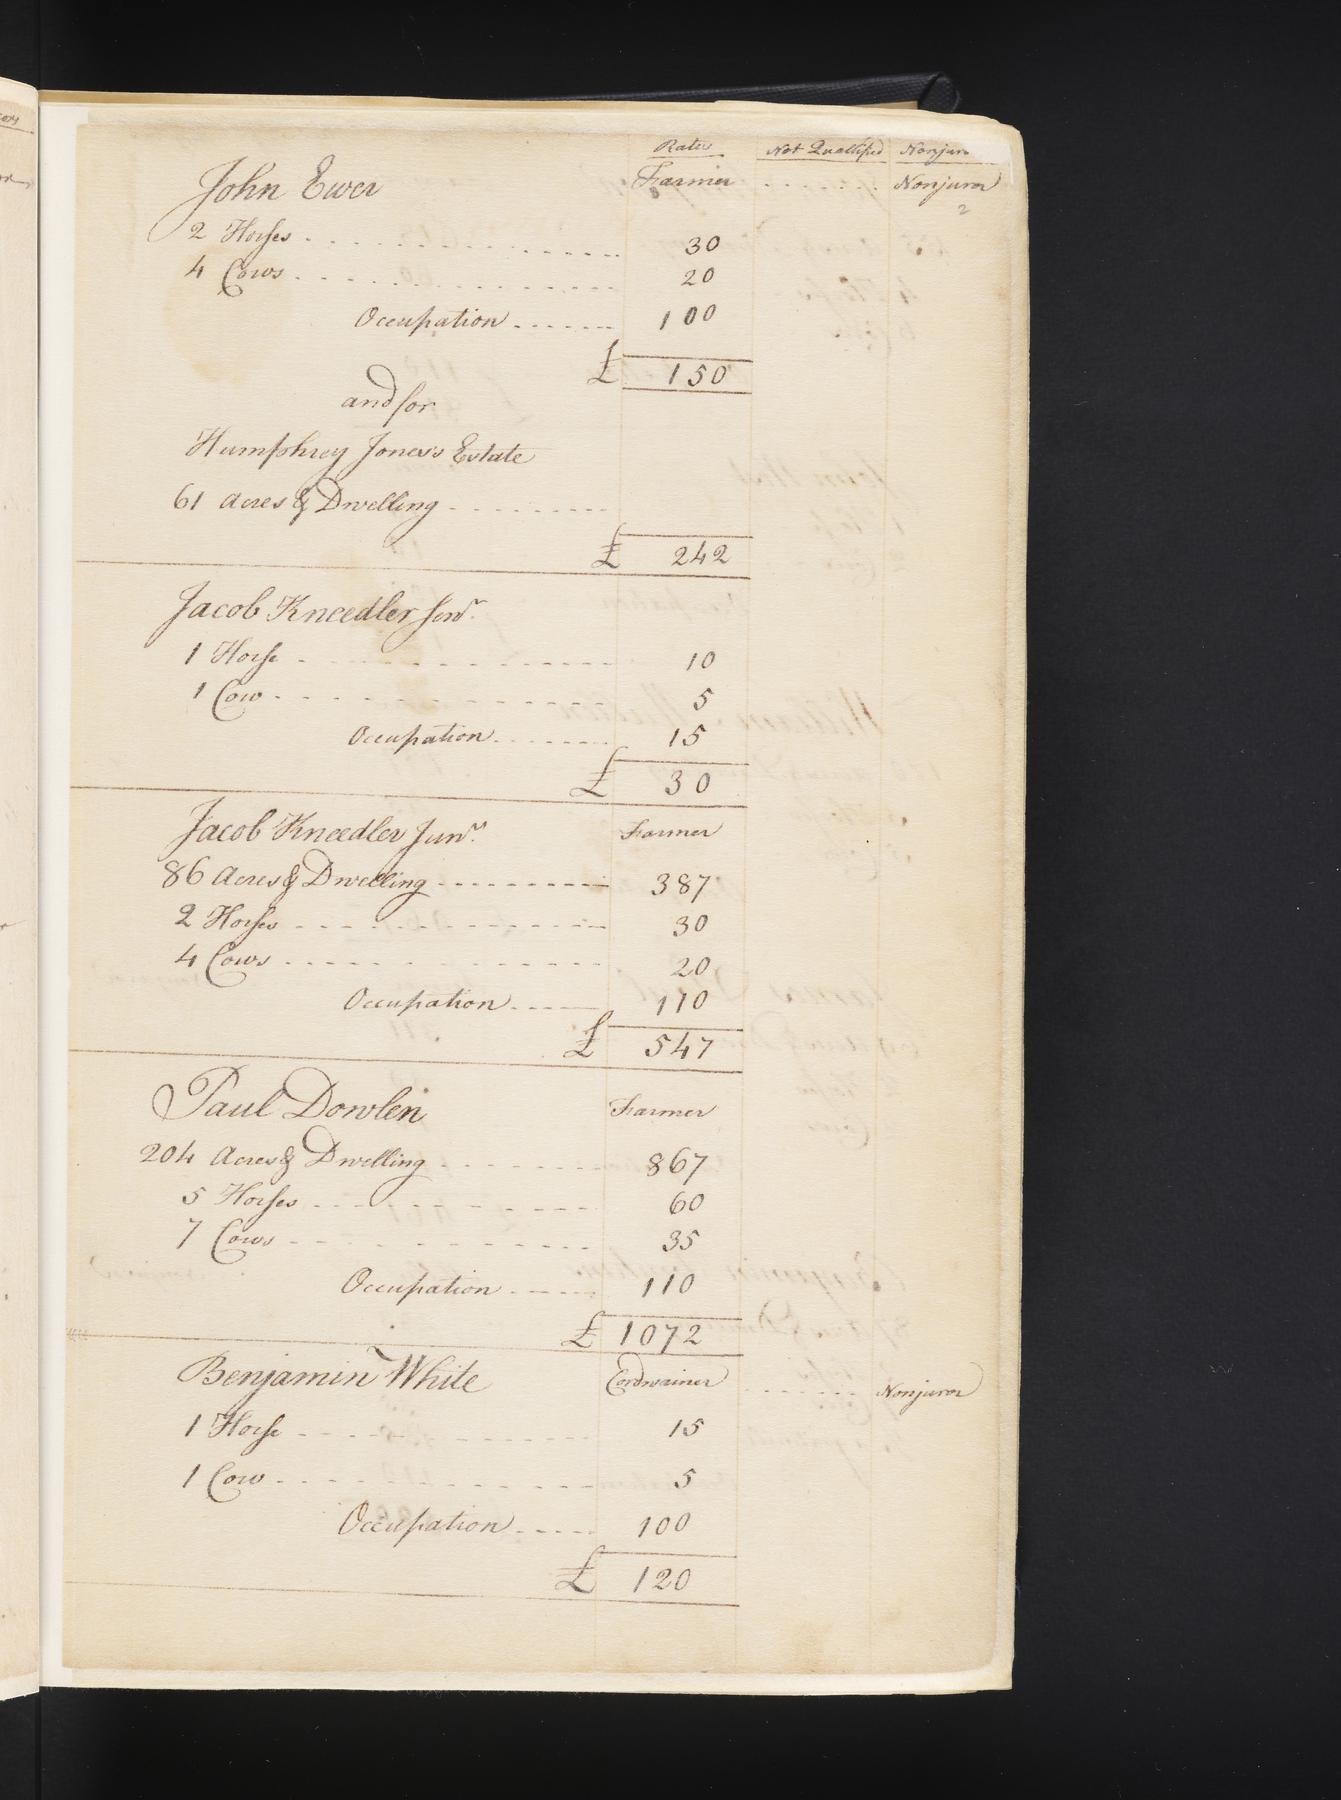 Rates Not Quallified Nonjuror
John Ewer Farmer Nonjuror
2
2 Horses 30
4 Cows 20
Occupation 100
£ 150
and for
Humphrey Jones's Estate
61 Acres & Dwelling
£ 242
Jacob Kneedler Senr.
1 Horse 10
1 Cow 5
Occupation 15
£ 30
Jacob Kneedler Junr. Farmer
86 Acres & Dwelling 387
2 Horses 30
4 Cows 20
Occupation 110
£ 547
Paul Dowlen Farmer
204 Acres & Dwelling 867
5 Horses 60
7 Cows 35
Occupation 110
£ 1072
Benjamin White Cordwainer Nonjuror
1 Horse 15
1 Cow 5
Occupation 100
£ 120